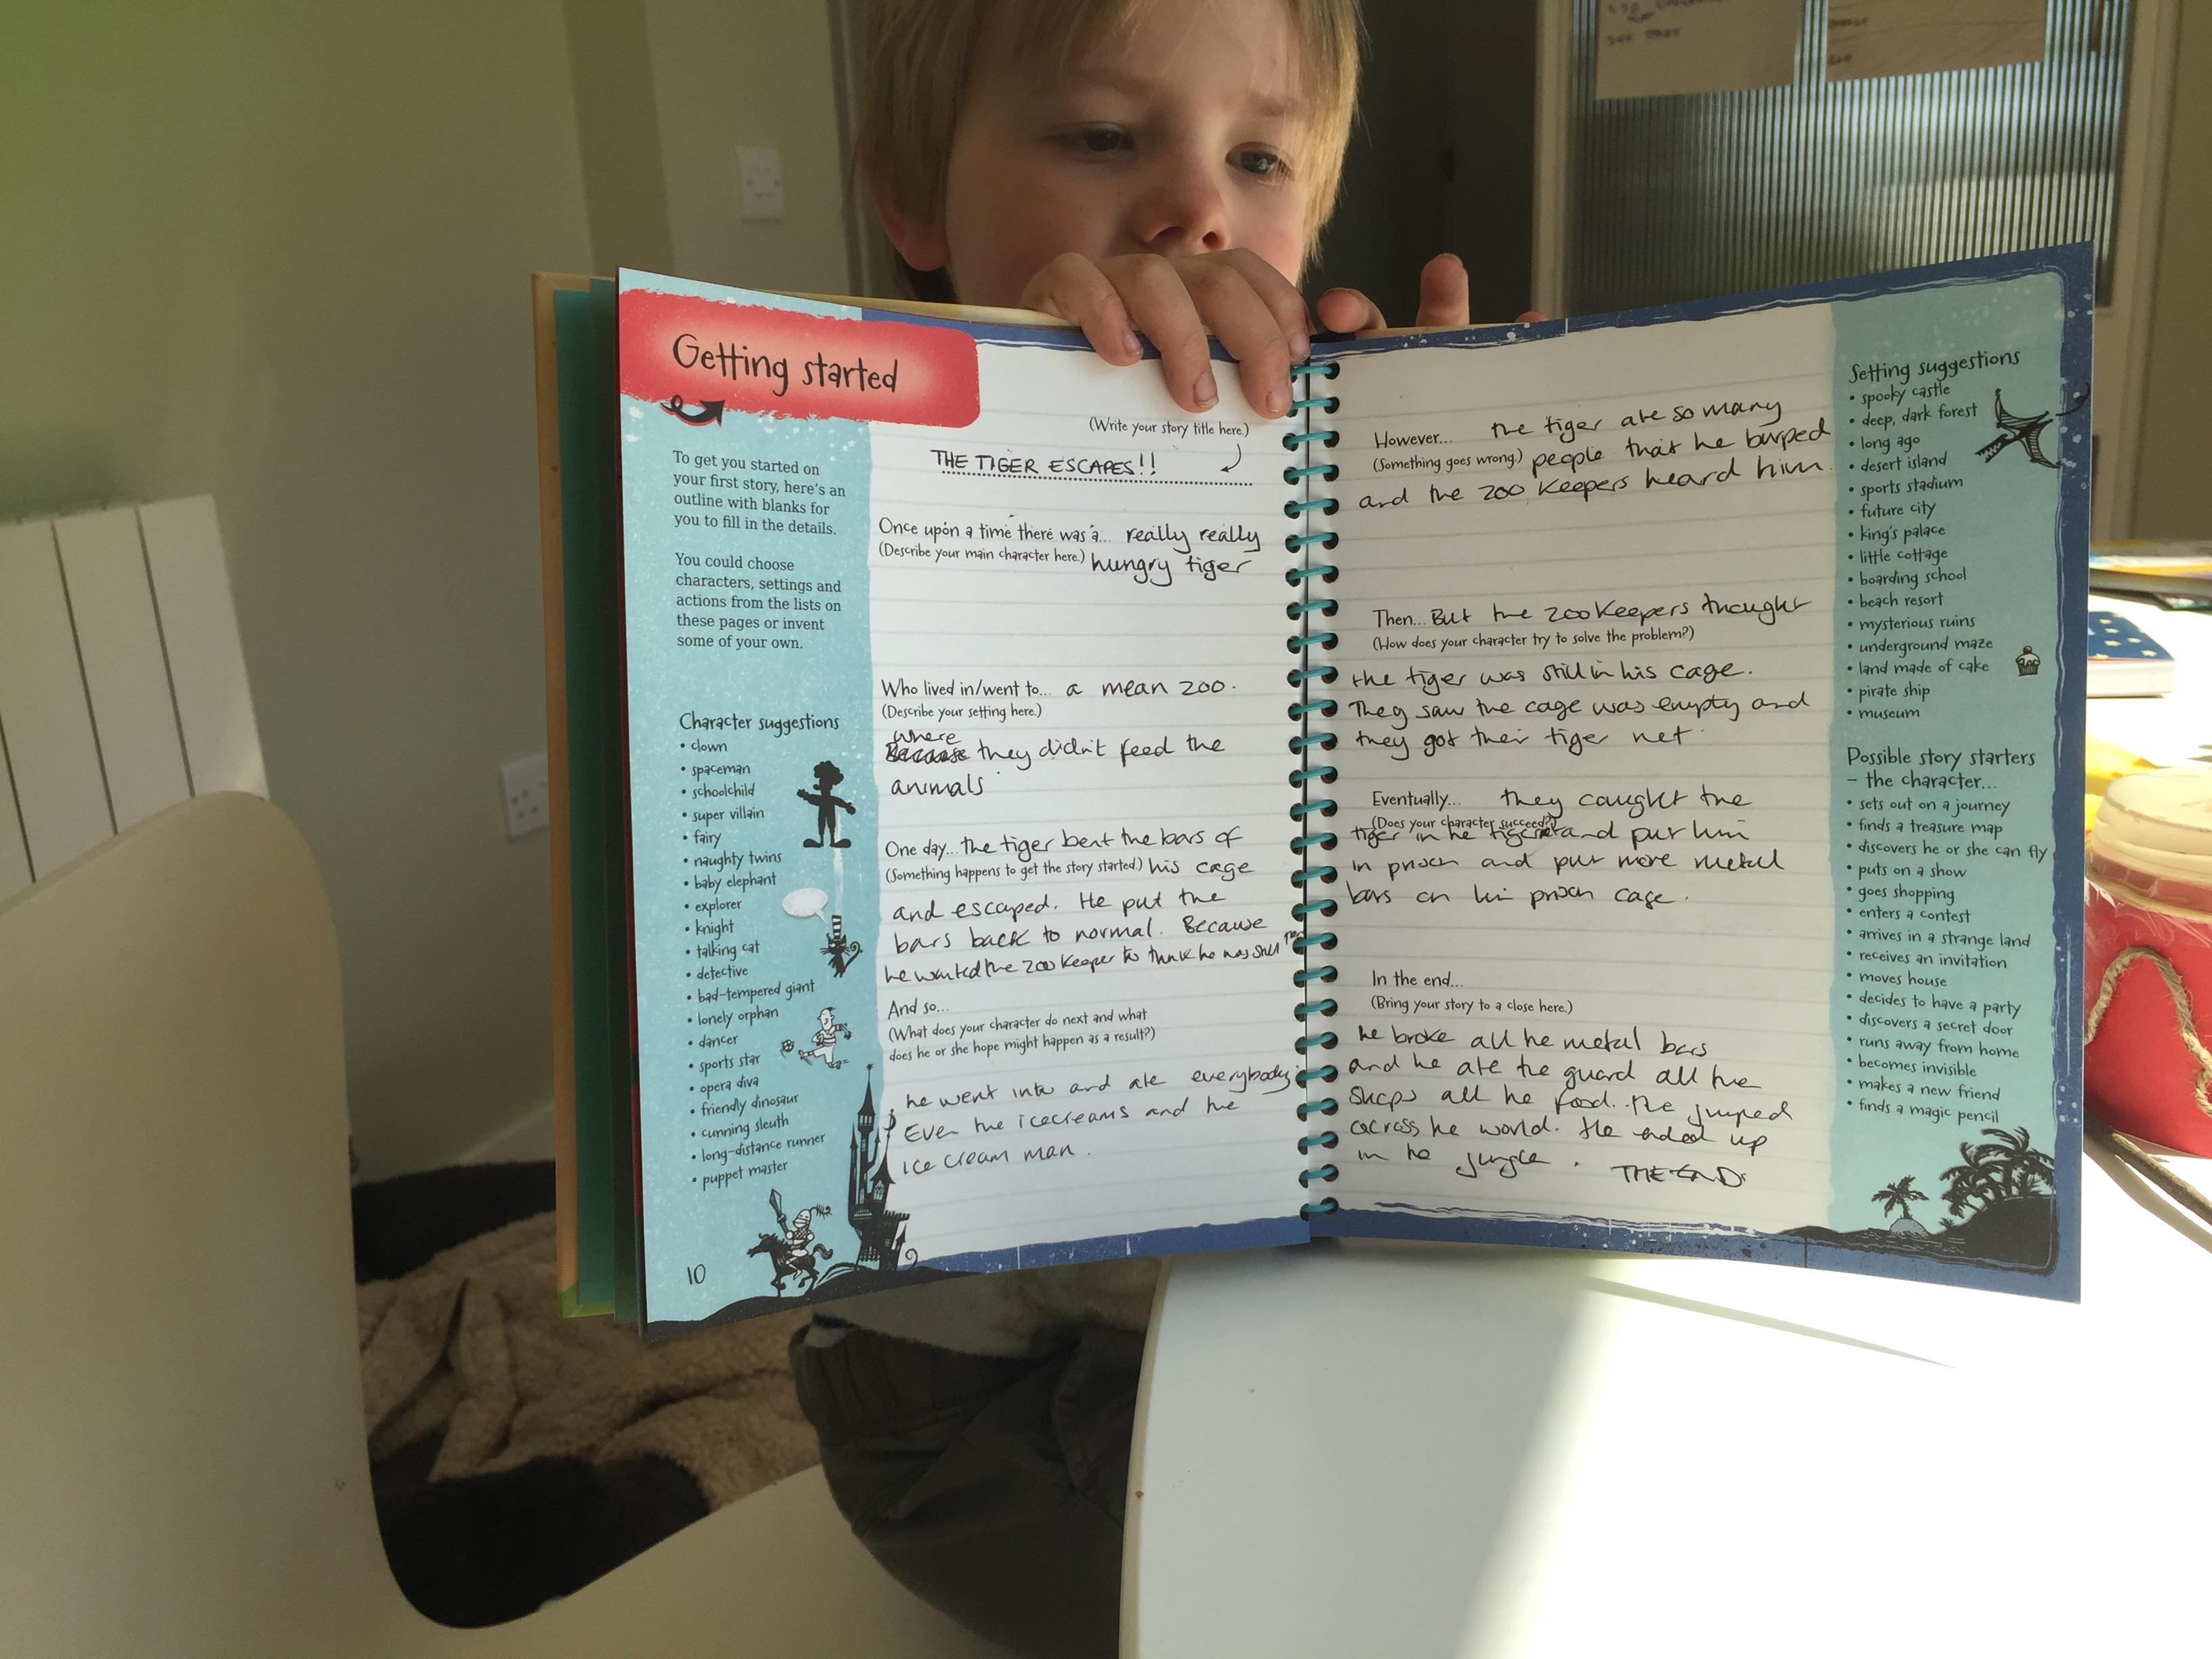 Getting started
To get you started on
your first story, here's an
outline with blanks for
you to fill in the details.
You could choose
characters, settings and
actions from the lists on
these pages or invent
some of your own.
Character suggestions
• clown
• spaceman
• schoolchild
• super villain
• fairy
• naughty twins
• baby elephant
• explorer
• knight
• talking cat
• detective
• bad-tempered giant
• lonely orphan
• dancer
• sports star
• opera diva
• friendly dinosaur
• cunning sleuth
• long-distance runner
• puppet master
10
(Write your story title here.)
THE TIGER ESCAPES!!
Once upon a time there was a... really really
(Describe your main character here.) hungry tiger
Who lived in/went to... a mean zoo.
(Describe your setting here.)
where
because they didn't feed the
animals
One day... the tiger bent the bars of
(Something happens to get the story started.) his cage
and escaped. He put the
bars back to normal. Because
he wanted the zoo keeper to think he was still
And so...
(What does your character do next and what
does he or she hope might happen as a result?)
he went into and ate everybody.
Even the icecreams and the
ice cream man.
However... the tiger ate so many
(Something goes wrong.) people that he burped
and the zoo keepers heard him
Then... But the zoo keepers thought
(How does your character try to solve the problem?)
the tiger was still in his cage.
They saw the cage was empty and
they got their tiger net.
Eventually... they caught the
(Does your character succeed?)
tiger in he and put him
in prison and put more metal
bars on his prison cage.
In the end...
(Bring your story to a close here.)
he broke all he metal bars
and he ate the guard all the
shops all he food. He jumped
across he world. He ended up
in he jungle. THE END.
Setting suggestions
• spooky castle
• deep, dark forest
• long ago
• desert island
• sports stadium
• future city
• king's palace
• little cottage
• boarding school
• beach resort
• mysterious ruins
• underground maze
• land made of cake
• pirate ship
• museum
Possible story starters
– the character...
• sets out on a journey
• finds a treasure map
• discovers he or she can fly
• puts on a show
• goes shopping
• enters a contest
• arrives in a strange land
• receives an invitation
• moves house
• decides to have a party
• discovers a secret door
• runs away from home
• becomes invisible
• makes a new friend
• finds a magic pencil